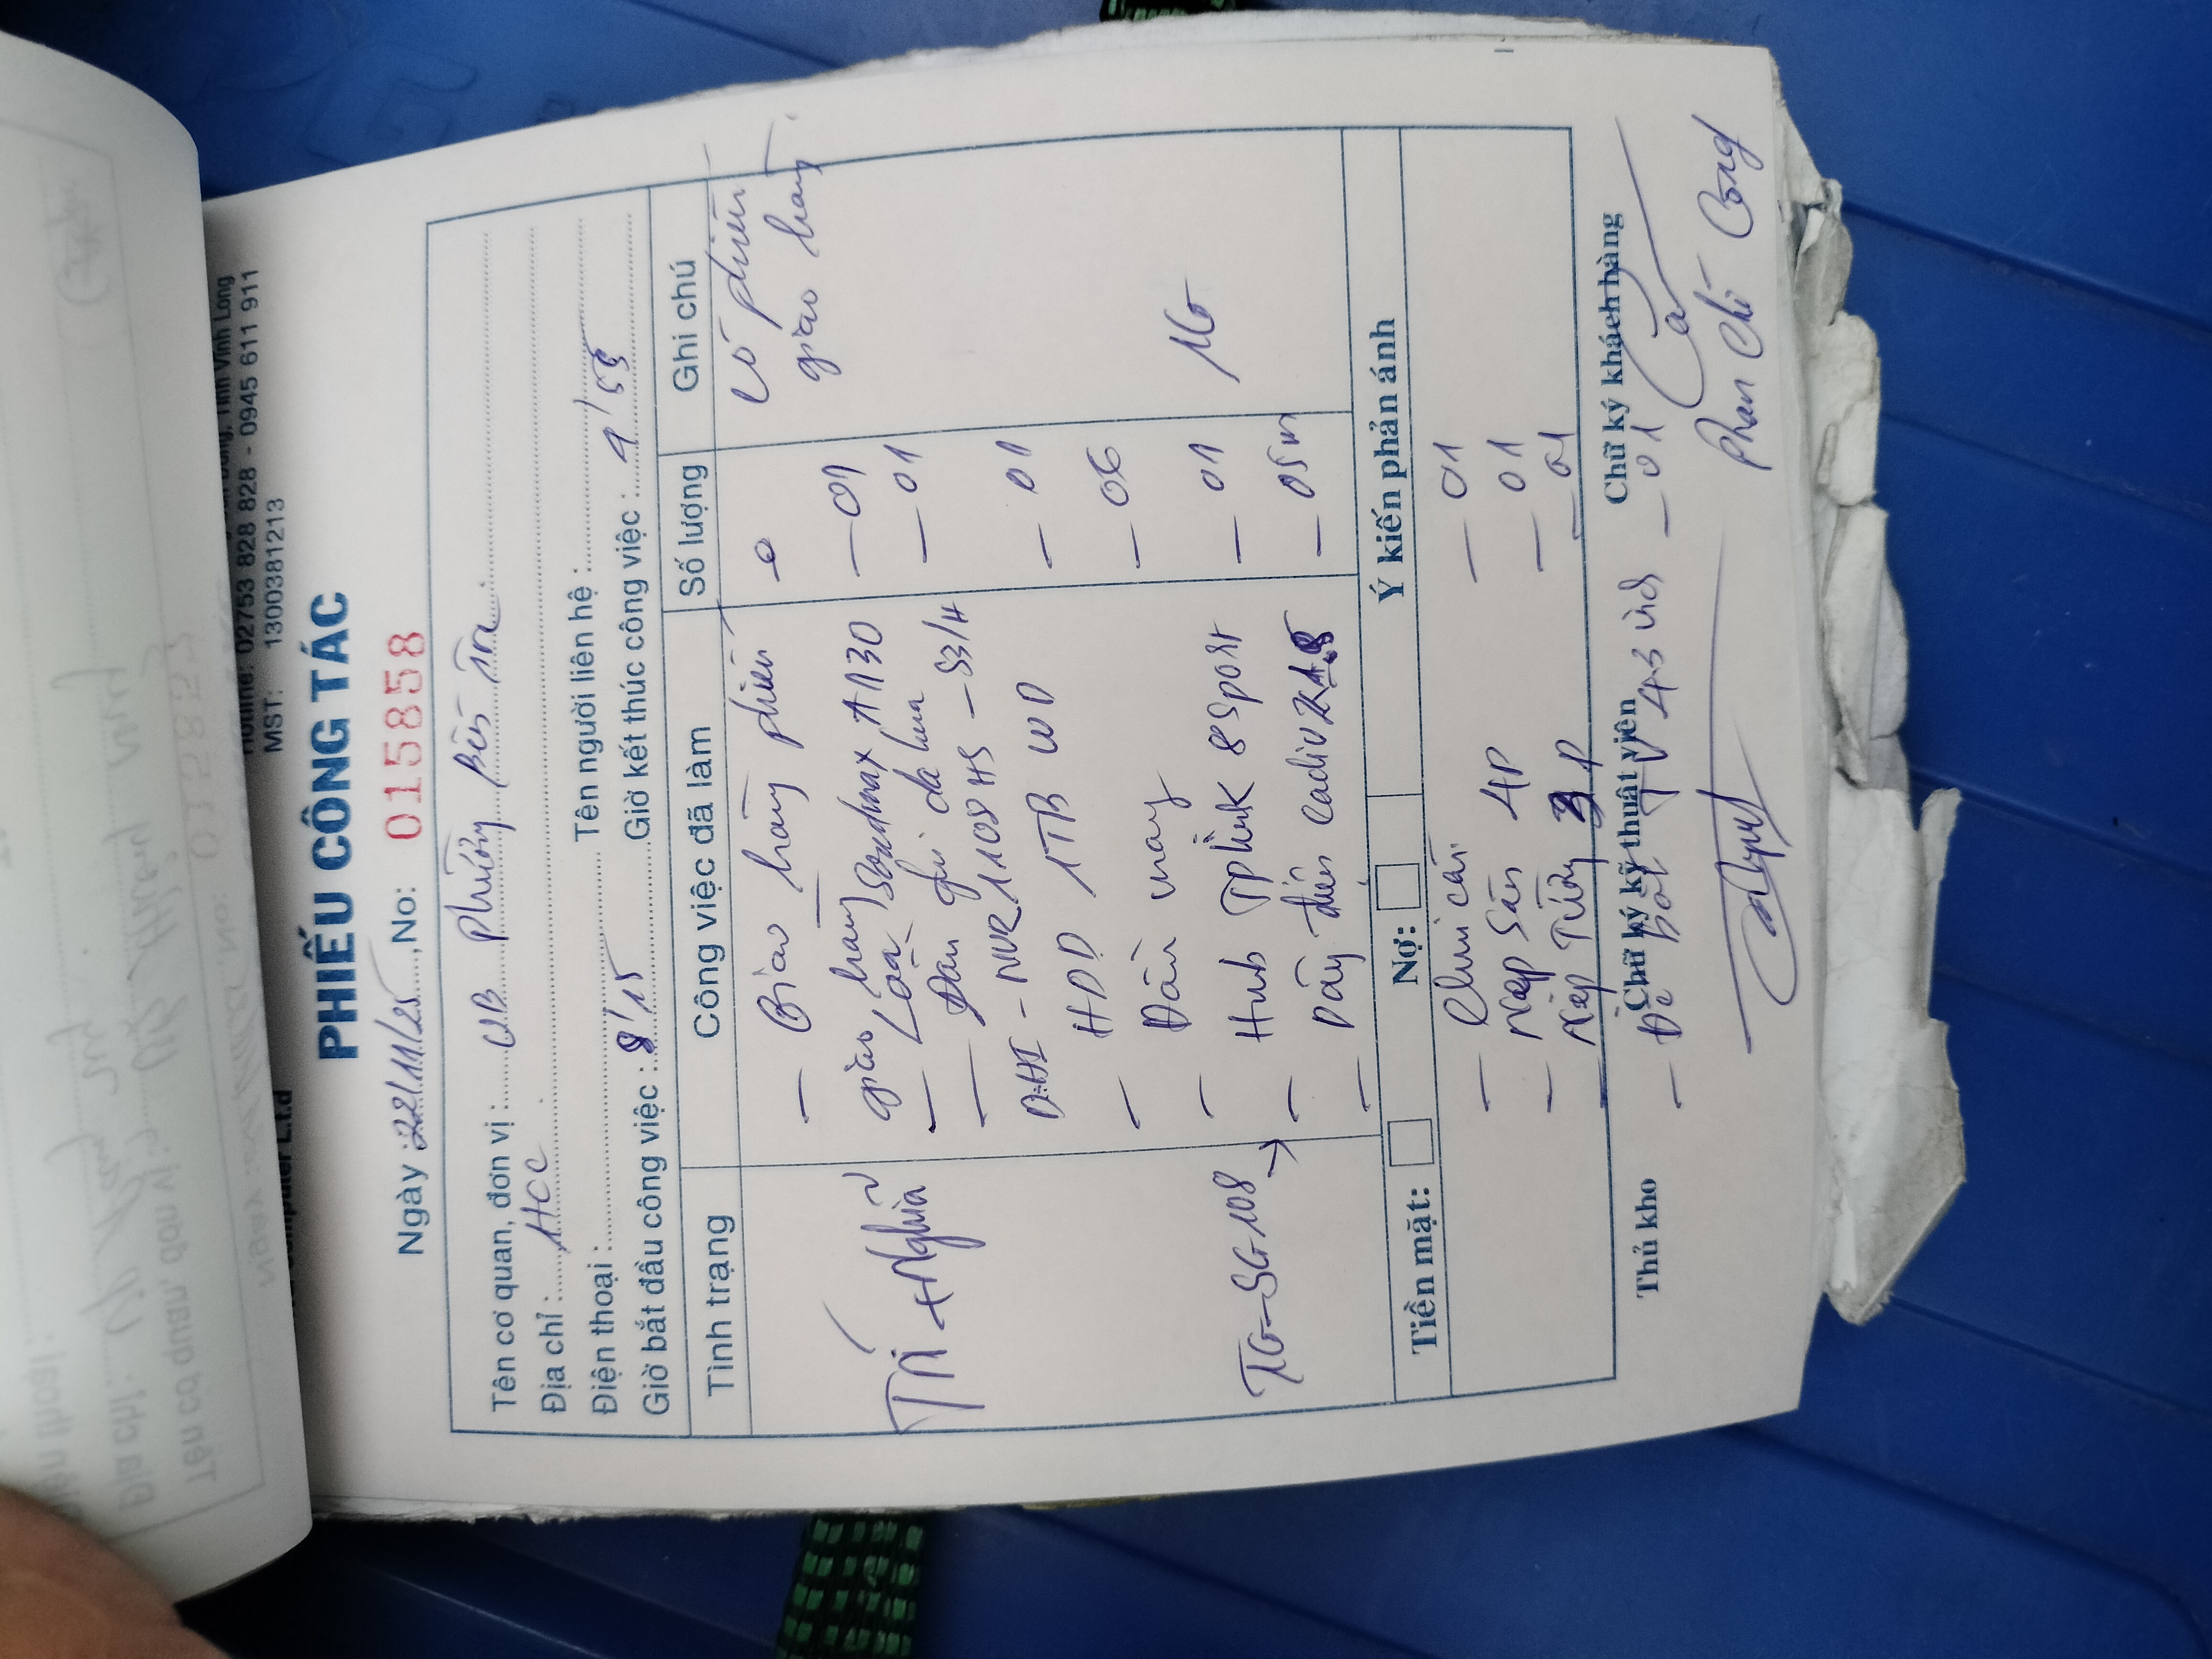 Hotline: 02753 828 828 - 0945 611 911
MST: 1300381213
PHIẾU CÔNG TÁC
Ngày : 22/11/25, No: 015858
Tên cơ quan, đơn vị : UB Phường Bến Tre.
Địa chỉ : HCC
Điện thoại : Tên người liên hệ :
Giờ bắt đầu công việc : 8/15 Giờ kết thúc công việc : 9/55
Tình trạng Công việc đã làm Số lượng Ghi chú
- Giao hàng phiếu Có phiếu
giao hàng
Trí + Nghĩa
giao hàng
- Loa Soudmax A130 - 01
- Đầu ghi da hua - 01
DHI - NVR 1108HS - S3/H
- HDD 1TB WD - 01
- Đầu mạng - 06
TG-SG108 → - Hub TPlink 8 Sport - 01
- Dây điện Cadivi - 05m
Tiền mặt: Nợ: Ý kiến phản ánh
- Chui cấm - 01
- Nẹp Sàn 4P - 01
- Nẹp Tường 3P - 01
Thủ kho Chữ ký kỹ thuật viên Chữ ký khách hàng
- TV 43 inch - 01
Phan Chí Công